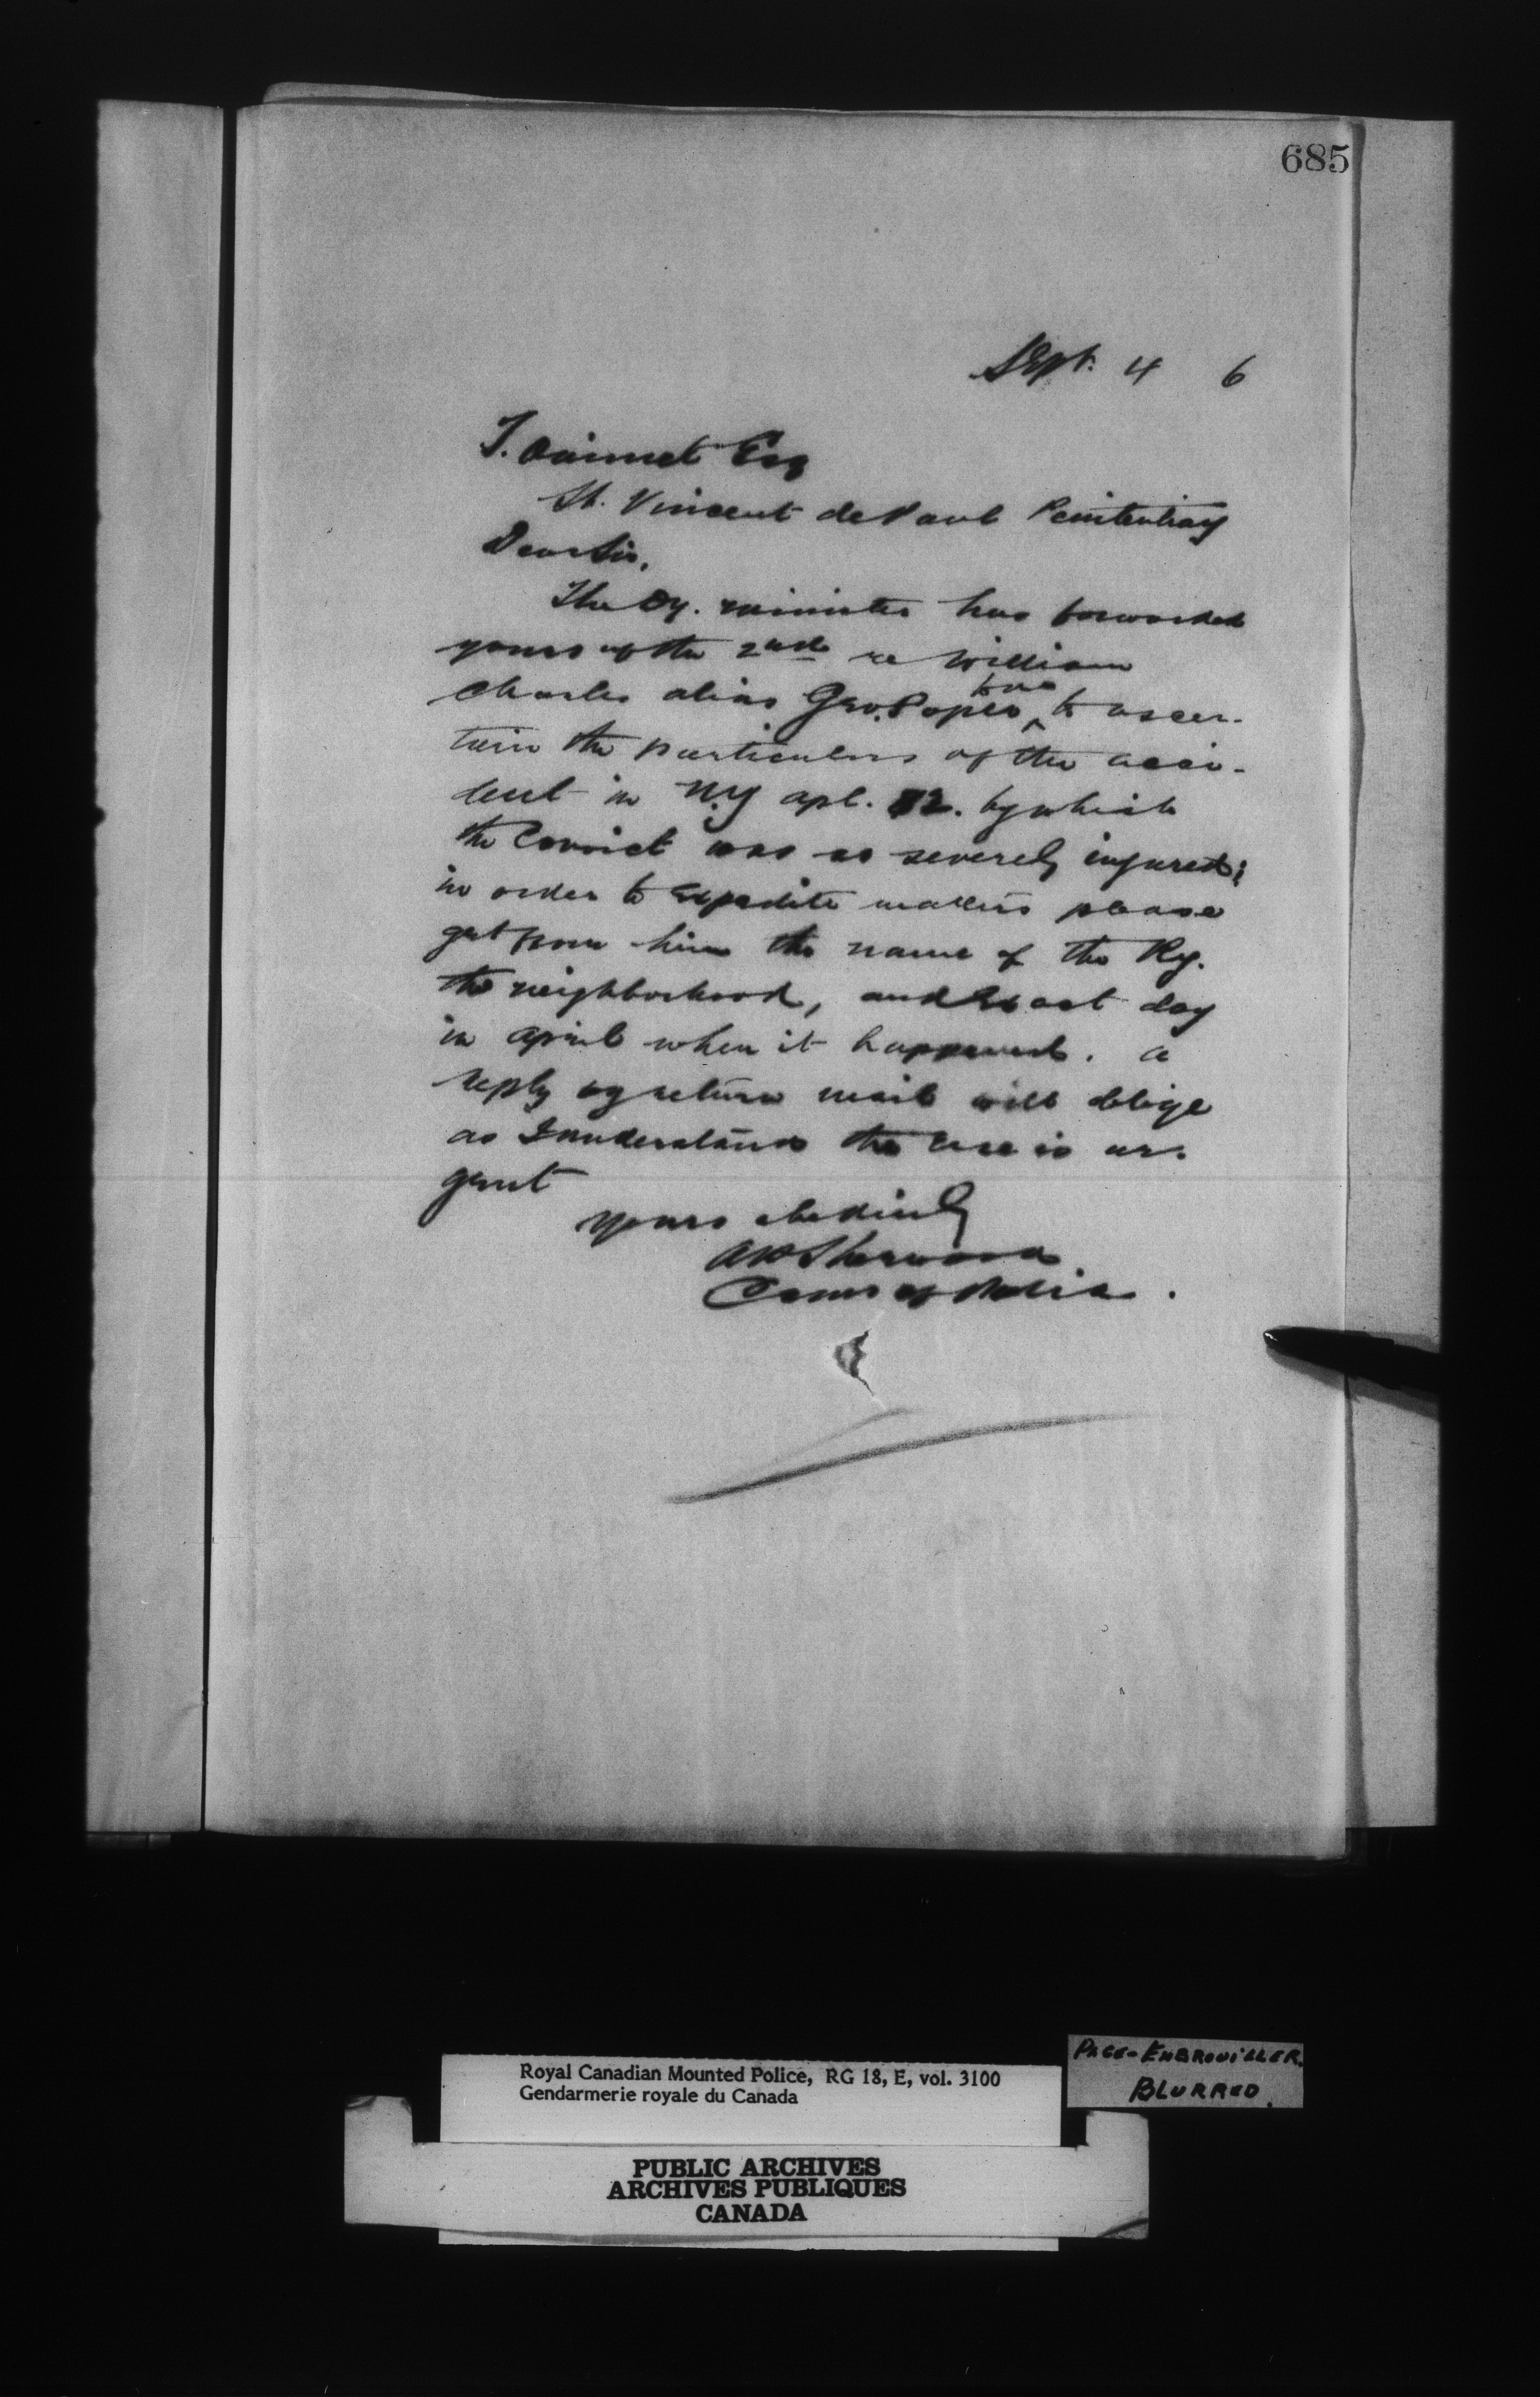 685
Sept. 4 6
T. Ouimet Esq
St. Vincent de Paul Penitentiary
Dear Sir,
The Dy. minister has forwarded
yours of the 2nd re William
Charles alias Geo. Popes to ascer-
tain the particulars of the acci-
dent in N.Y apl. 82. by which
the Convict was so severely injured;
in order to expedite matters please
get from him the name of the Ry.
the neighborhood, and exact day
in april when it happened. a
reply by return mail will oblige
as I understand the case is ur-
gent
yours obediently
AP Sherwood
Comr of Police.
Royal Canadian Mounted Police, RG 18, E, vol. 3100
Gendarmerie royale du Canada
PAGE-EMBROUILLER.
BLURRED.
PUBLIC ARCHIVES
ARCHIVES PUBLIQUES
CANADA